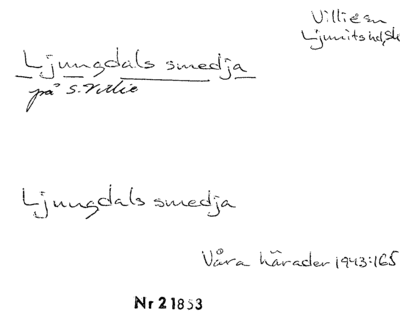 Villie sn
Ljunits hd, Sk
Ljungdals smedja
på S. Villie
Ljungdals smedja
Våra härader 1943:165
Nr 21853